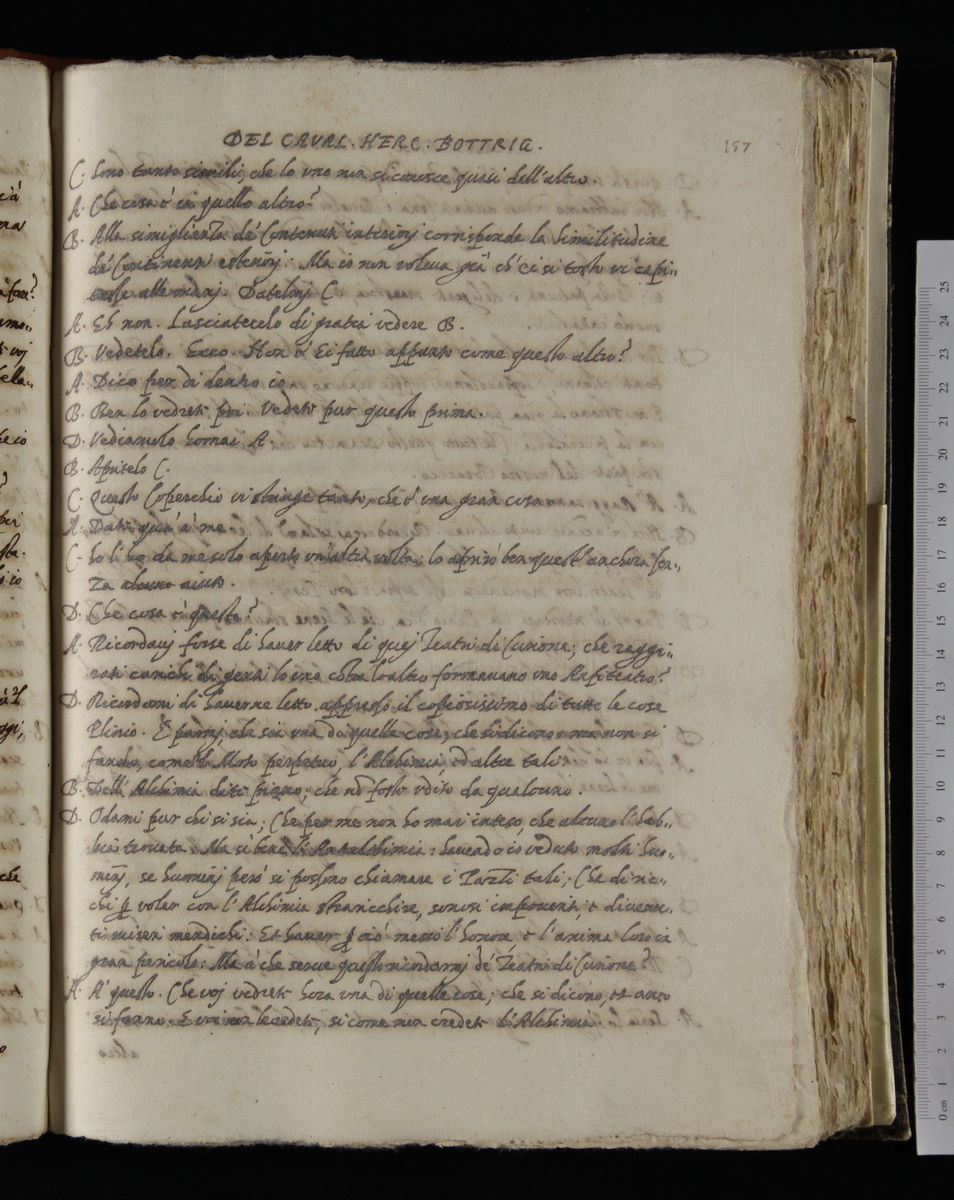 DEL CAVAL. HERC. BOTTRIG.
157
C. Sono tanto simili, che lo uno non si conosce quasi dall'altro.
A. Che cosa è in quello altro?
B. Alla simiglianza de' Contenuti interiorj corrisponde la Similitudine
de' Continenti esteriorj. Ma io non voleva già ch'ei si tosto vi capi=
tasse alle manj. Datelomj C.
A. Eh non. Lasciatecelo di gratia vedere B.
B. Vedetelo. Ecco. Non è Ei fatto appunto come questo altro?
A. Dico per di dentro io.
B. Ben lo vedrete poi. Vedete pur questo prima.
D. Vediamolo hormai A
B. Apritelo C.
C. Questo Coperchio vi stringe tanto, che è una gran cosa.
A. Date qua à me.
C. Io l'ho da me solo aperto un'altra volta: lo aprirò ben quest'anchora sen=
za alcuno aiuto.
D. Che cosa è questa?
A. Ricordavj forse di haver letto di quej Teatri di Curione; che raggi=
rati carichi di genti lo uno contra lo altro formavano uno Anfiteatro?
D. Ricordomi di haverne letto appresso il copiosissimo di tutte le cose
Plinio. E parmj, che sia una di quelle cose, che si dicono: ma non si
fanno, come il Moto perpetuo, l'Alchimia, ed altre tali.
B. Dell'Alchimia dite piano; che nō foste udito da qualcuno.
D. Odami pur chi si sia; Che per me non ho mai inteso, che alcuno l'hab=
bia trovata. Ma si bene l' : havendo io veduto molti huo=
minj, se huominj però si possono chiamare i Pazzi tali; Che di ric=
chi ꝑ voler con l'Alchimia straricchire, sonosi impoveriti, e divenu=
ti miseri mendichi: Et haver ꝑ ciò messo l'honor, e l'anima loro in
gran pericolo: Ma à che serve questo ricordarmj de' Teatri di Curione?
A. A' questo. Che voj vedrete hora una di quelle cose; che si dicono, et anco
si fanno. E voi non le credete, si come non credete l'Alchimia.
altro